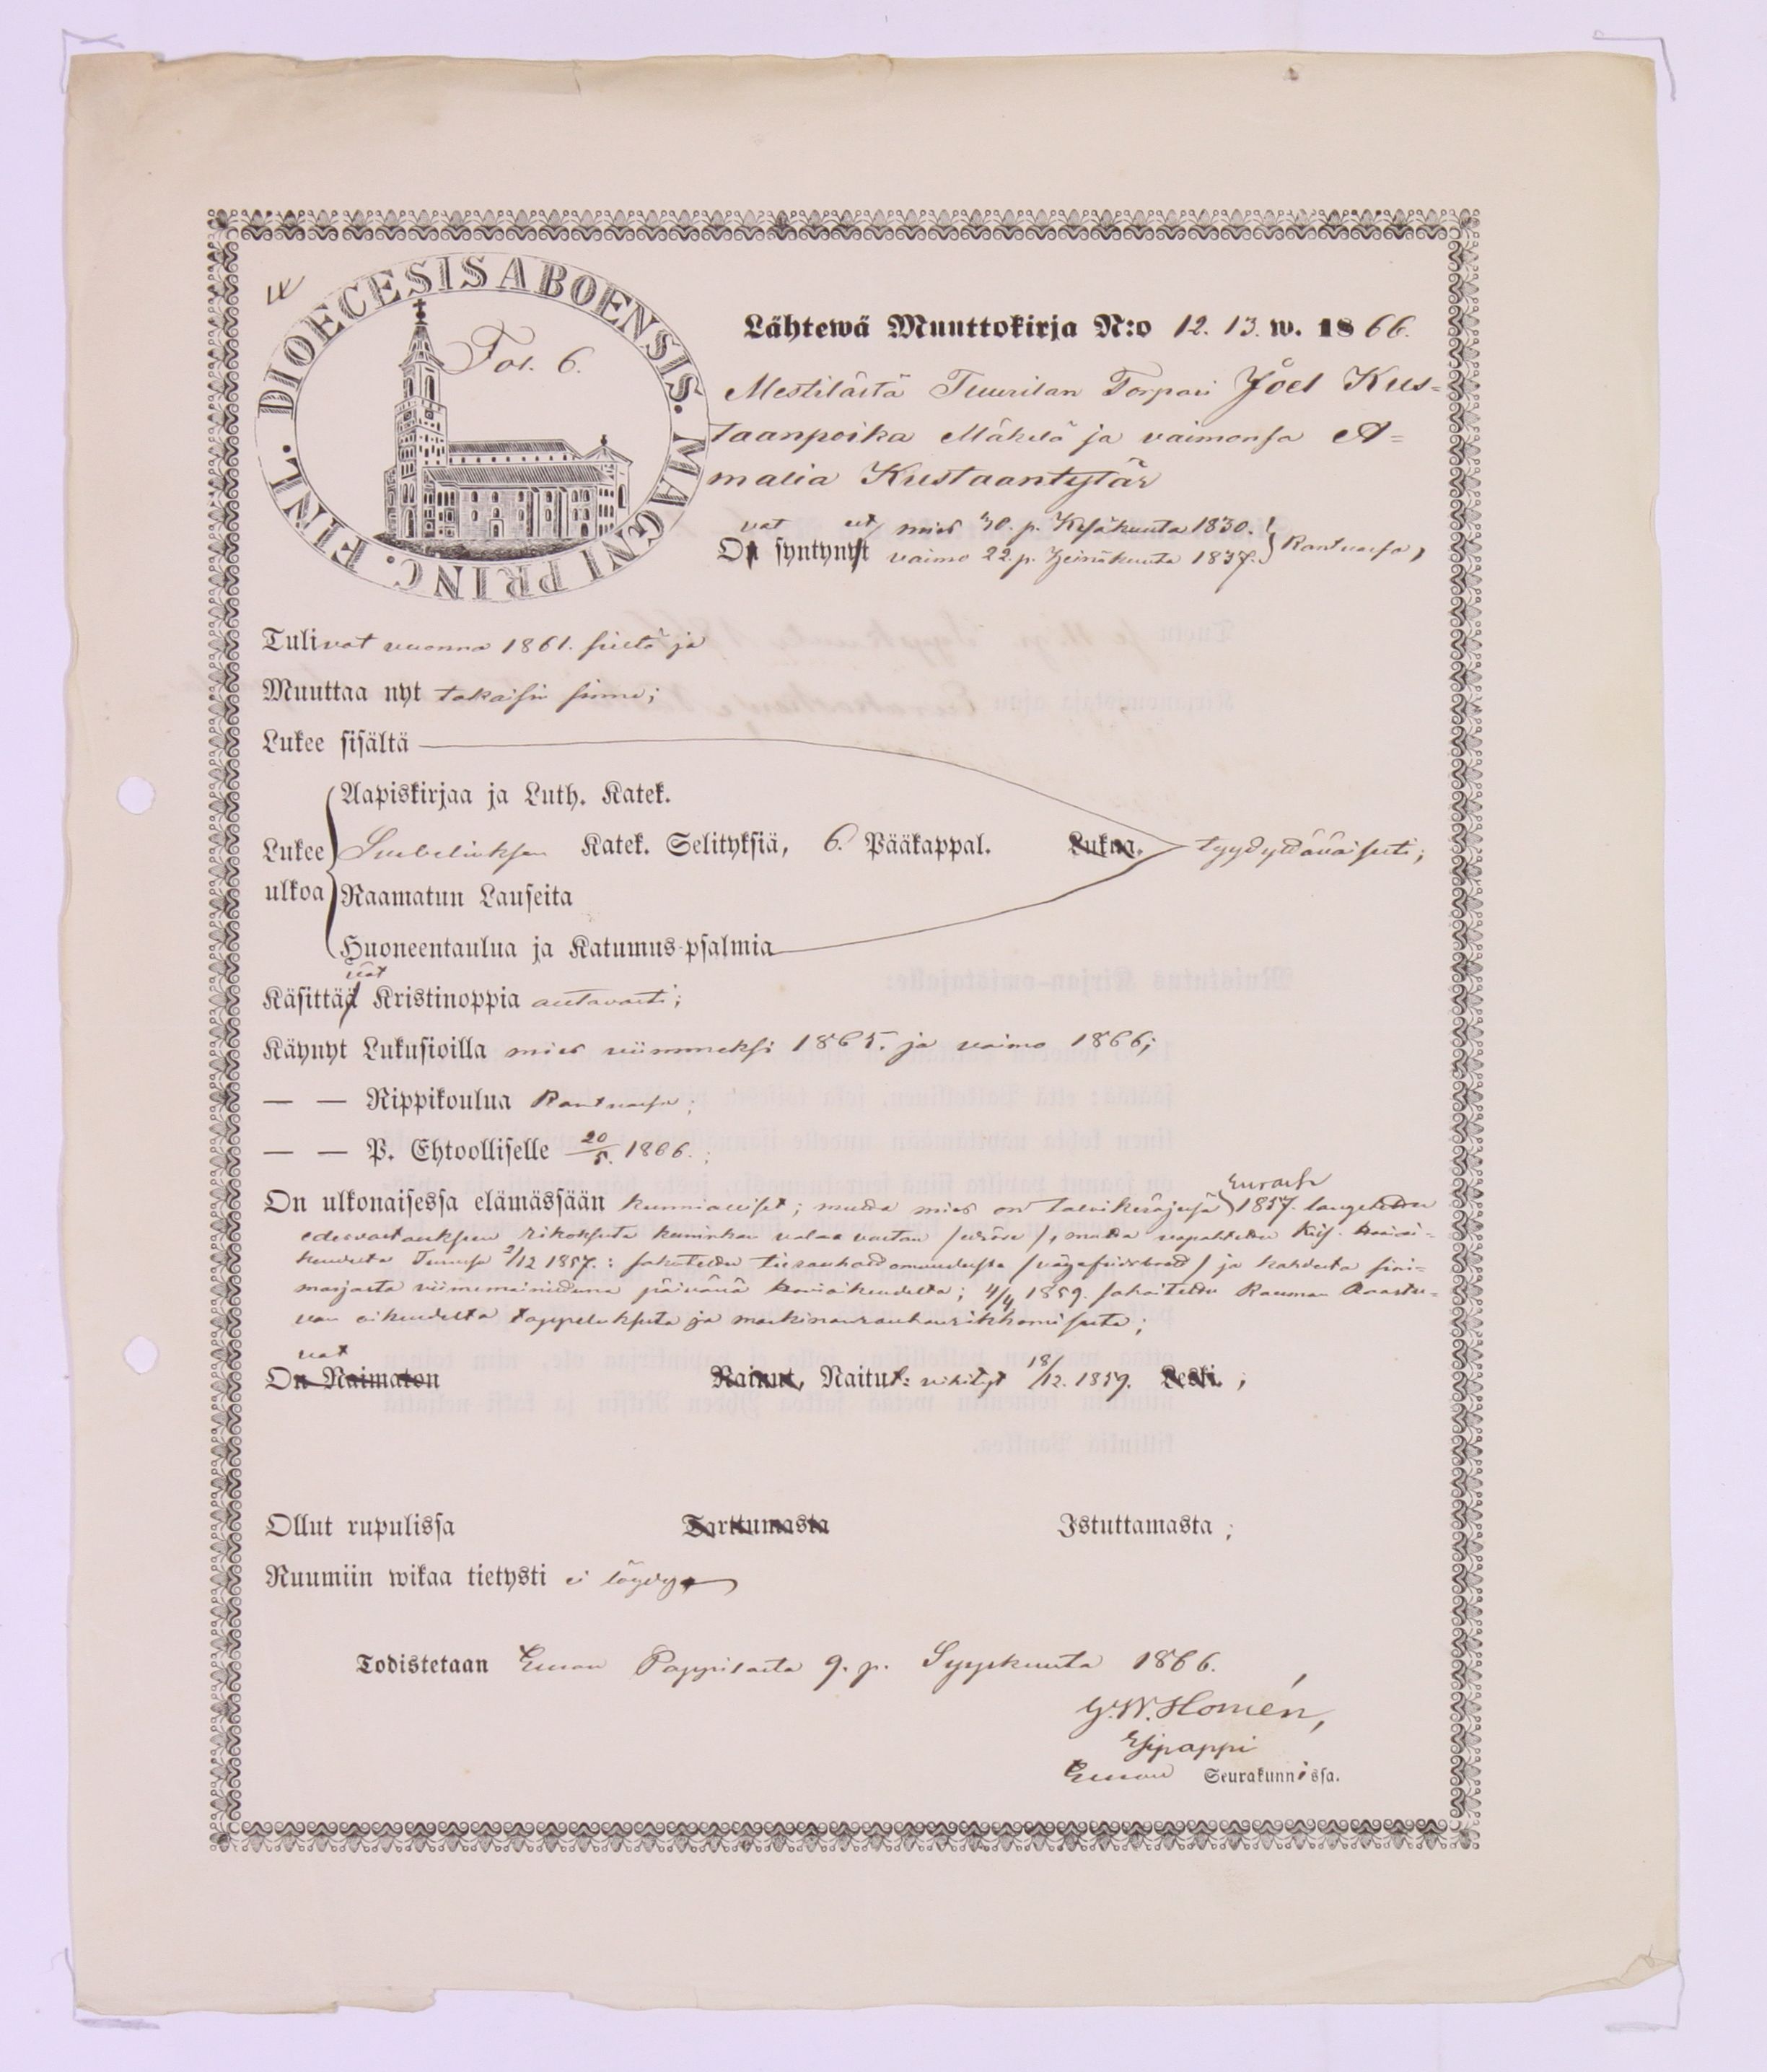 DIOECESIS ABOENSIS. MAGNI PRINC. FINL.
Fol. 6.
Lähtewä Muuttokirja N:o 12. 13. w. 1866.
Mestilästä Tuurilan Torpari Joel Kus=
taanpoika Mäkelä ja vaimonsa A=
malia Kustaantytär
vat eet mies 30. p. Kesäkuuta 1830.
On syntynyt vaimo 22. p. Heinäkuuta 1837. Rantuassa,
Tulivat vuonna 1861. sieltä ja
Muuttaa nyt takaisin sinne;
Lukee sisältä
Aapiskirjaa ja Luth. Katek.
Lukee ulkoa Katek. Selityksiä, 6. Pääkappal. Lukua. tyydyttäväisesti;
Raamatun Lauseita
Huoneentaulua ja Katumus-psalmia
vät
Käsittää Kristinoppia auttavasti;
Käynyt Lukusioilla mies viimmeksi 1865. ja vaimo 1866;
— — Rippikoulua
— — P. Ehtoolliselle 20/5. 1866.;
Eurassa
On ulkonaisessa elämässään kunnialliset; mutta mies on talvikäräjissä 1857. langetettu
edesvastaukseen rikoksesta kuninkaan valaa vastaan
2/12 1857.: ja kahdesta sini=
marjasta viimemainittuna päivänä 4/4 1859. sakoitettu Rauman Raastu=
van oikeudelta tappeluksesta ja markkinarauhanrikkomisesta;
vat
On Naimaton Nainut, Naitut: vihityt 18/12. 1859. Leski.;
Ollut rupulissa Tarttumasta Istuttamasta;
Ruumiin wikaa tietysti ei löydy
Todistetaan Euran Pappilasta 9. p. Syyskuuta 1866.
G. W. Homén,
Esipappi
Euran Seurakunnissa.